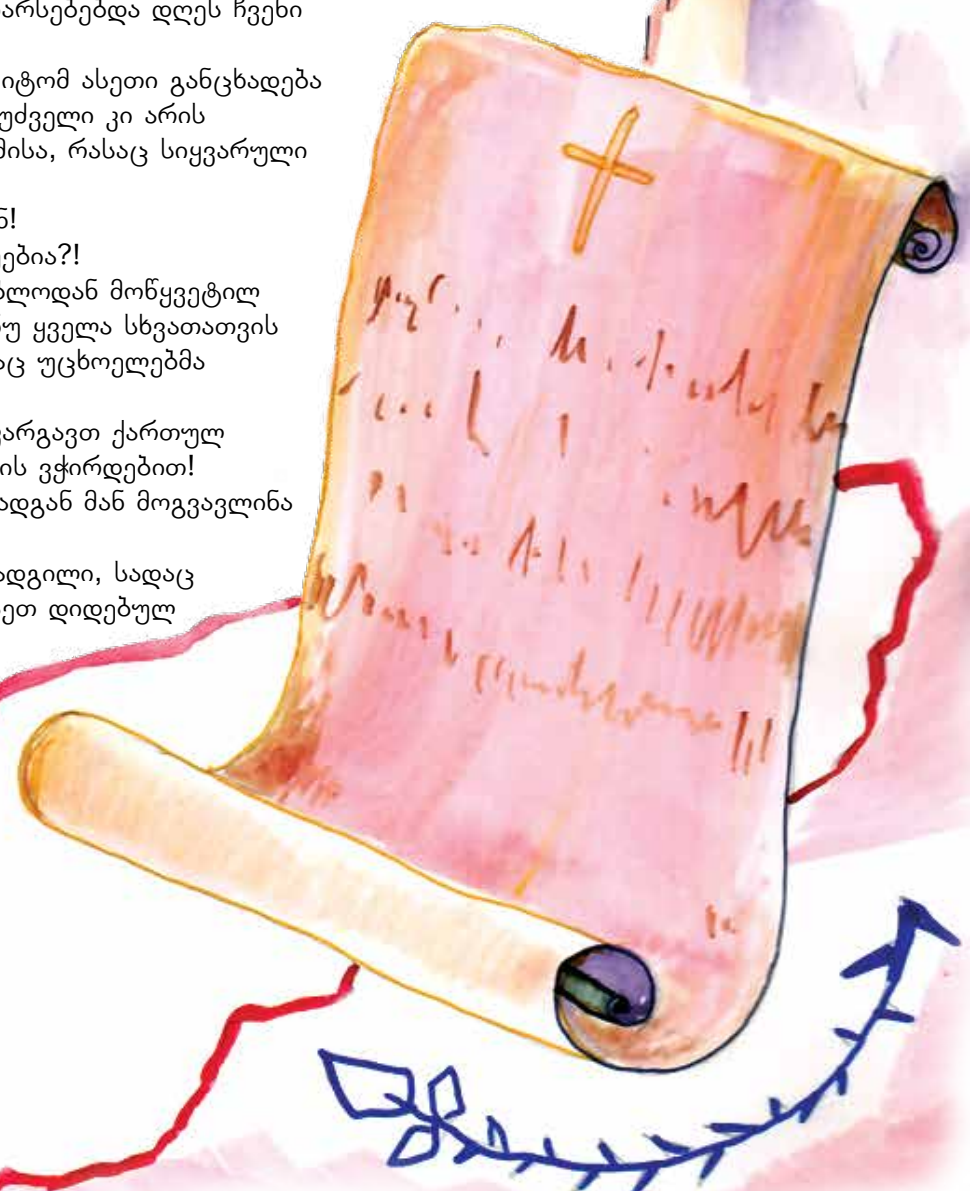 არსებებდა დღეს ჩვენი
იტომ ასეთი განცხადება
უძველი კი არის
მისა, რასაც სიყვარული
ნ!
ებია?!
ბლოდან მოწყვეტილ
ნუ ყველა სხვათათვის
აც უცხოელებმა
კარგავთ ქართულ
ის ვჭირდებით!
ადგან მან მოგვავლინა
ადგილი, სადაც
ეთ დიდებულ